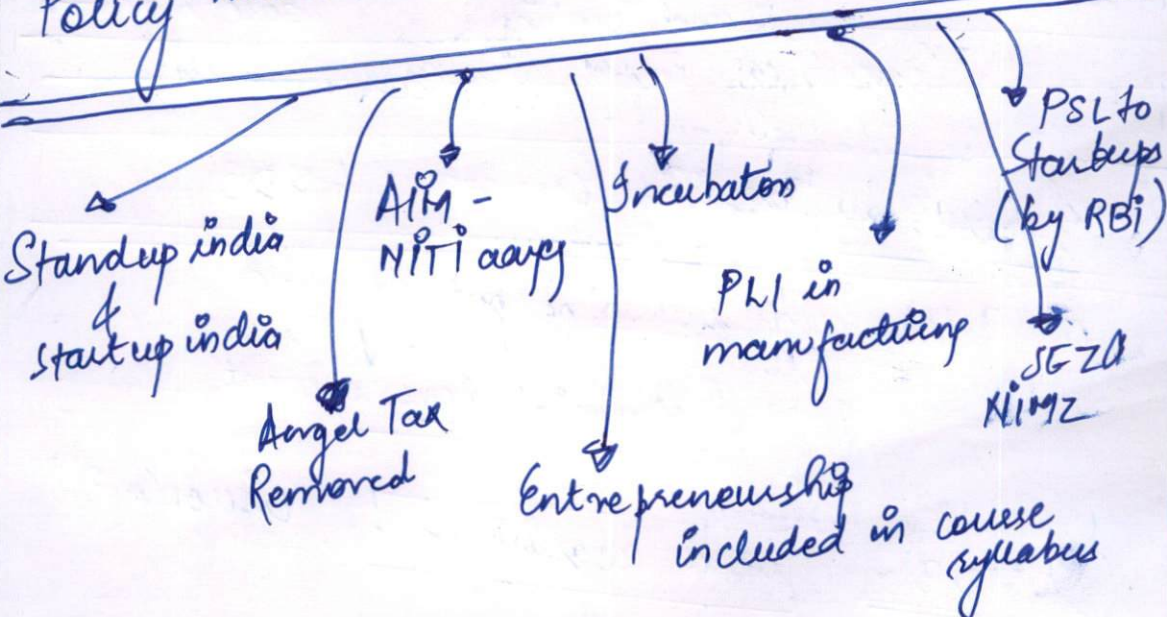 Policy
Standup india
&
startup india
Angel Tax
Removed
AIM -
NITI aayog
Entrepreneurship
included in course
syllabus
Incubators
PLI in
manufacturing
PSL to
Startups
(by RBI)
SEZ &
NIMZ